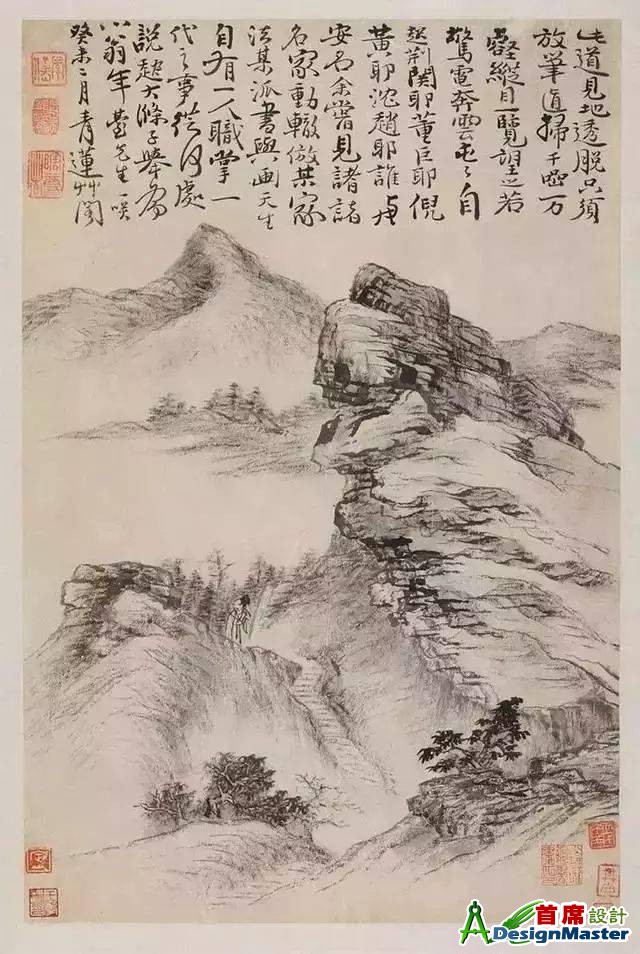 此道見地透脫只須
放筆直掃千巖萬
壑縱目一覽望之若
驚電奔雲屯々自
起荊關耶董巨耶倪
黃耶沈趙耶誰與
安名余嘗見諸諸
名家動輒倣某家
法某派書與画天生
自有一人職掌一
代之事從何處
說起大滌子舉為
小翁年臺先生一咲
癸未二月青蓮艸閣
首席設計
ADesignMaster